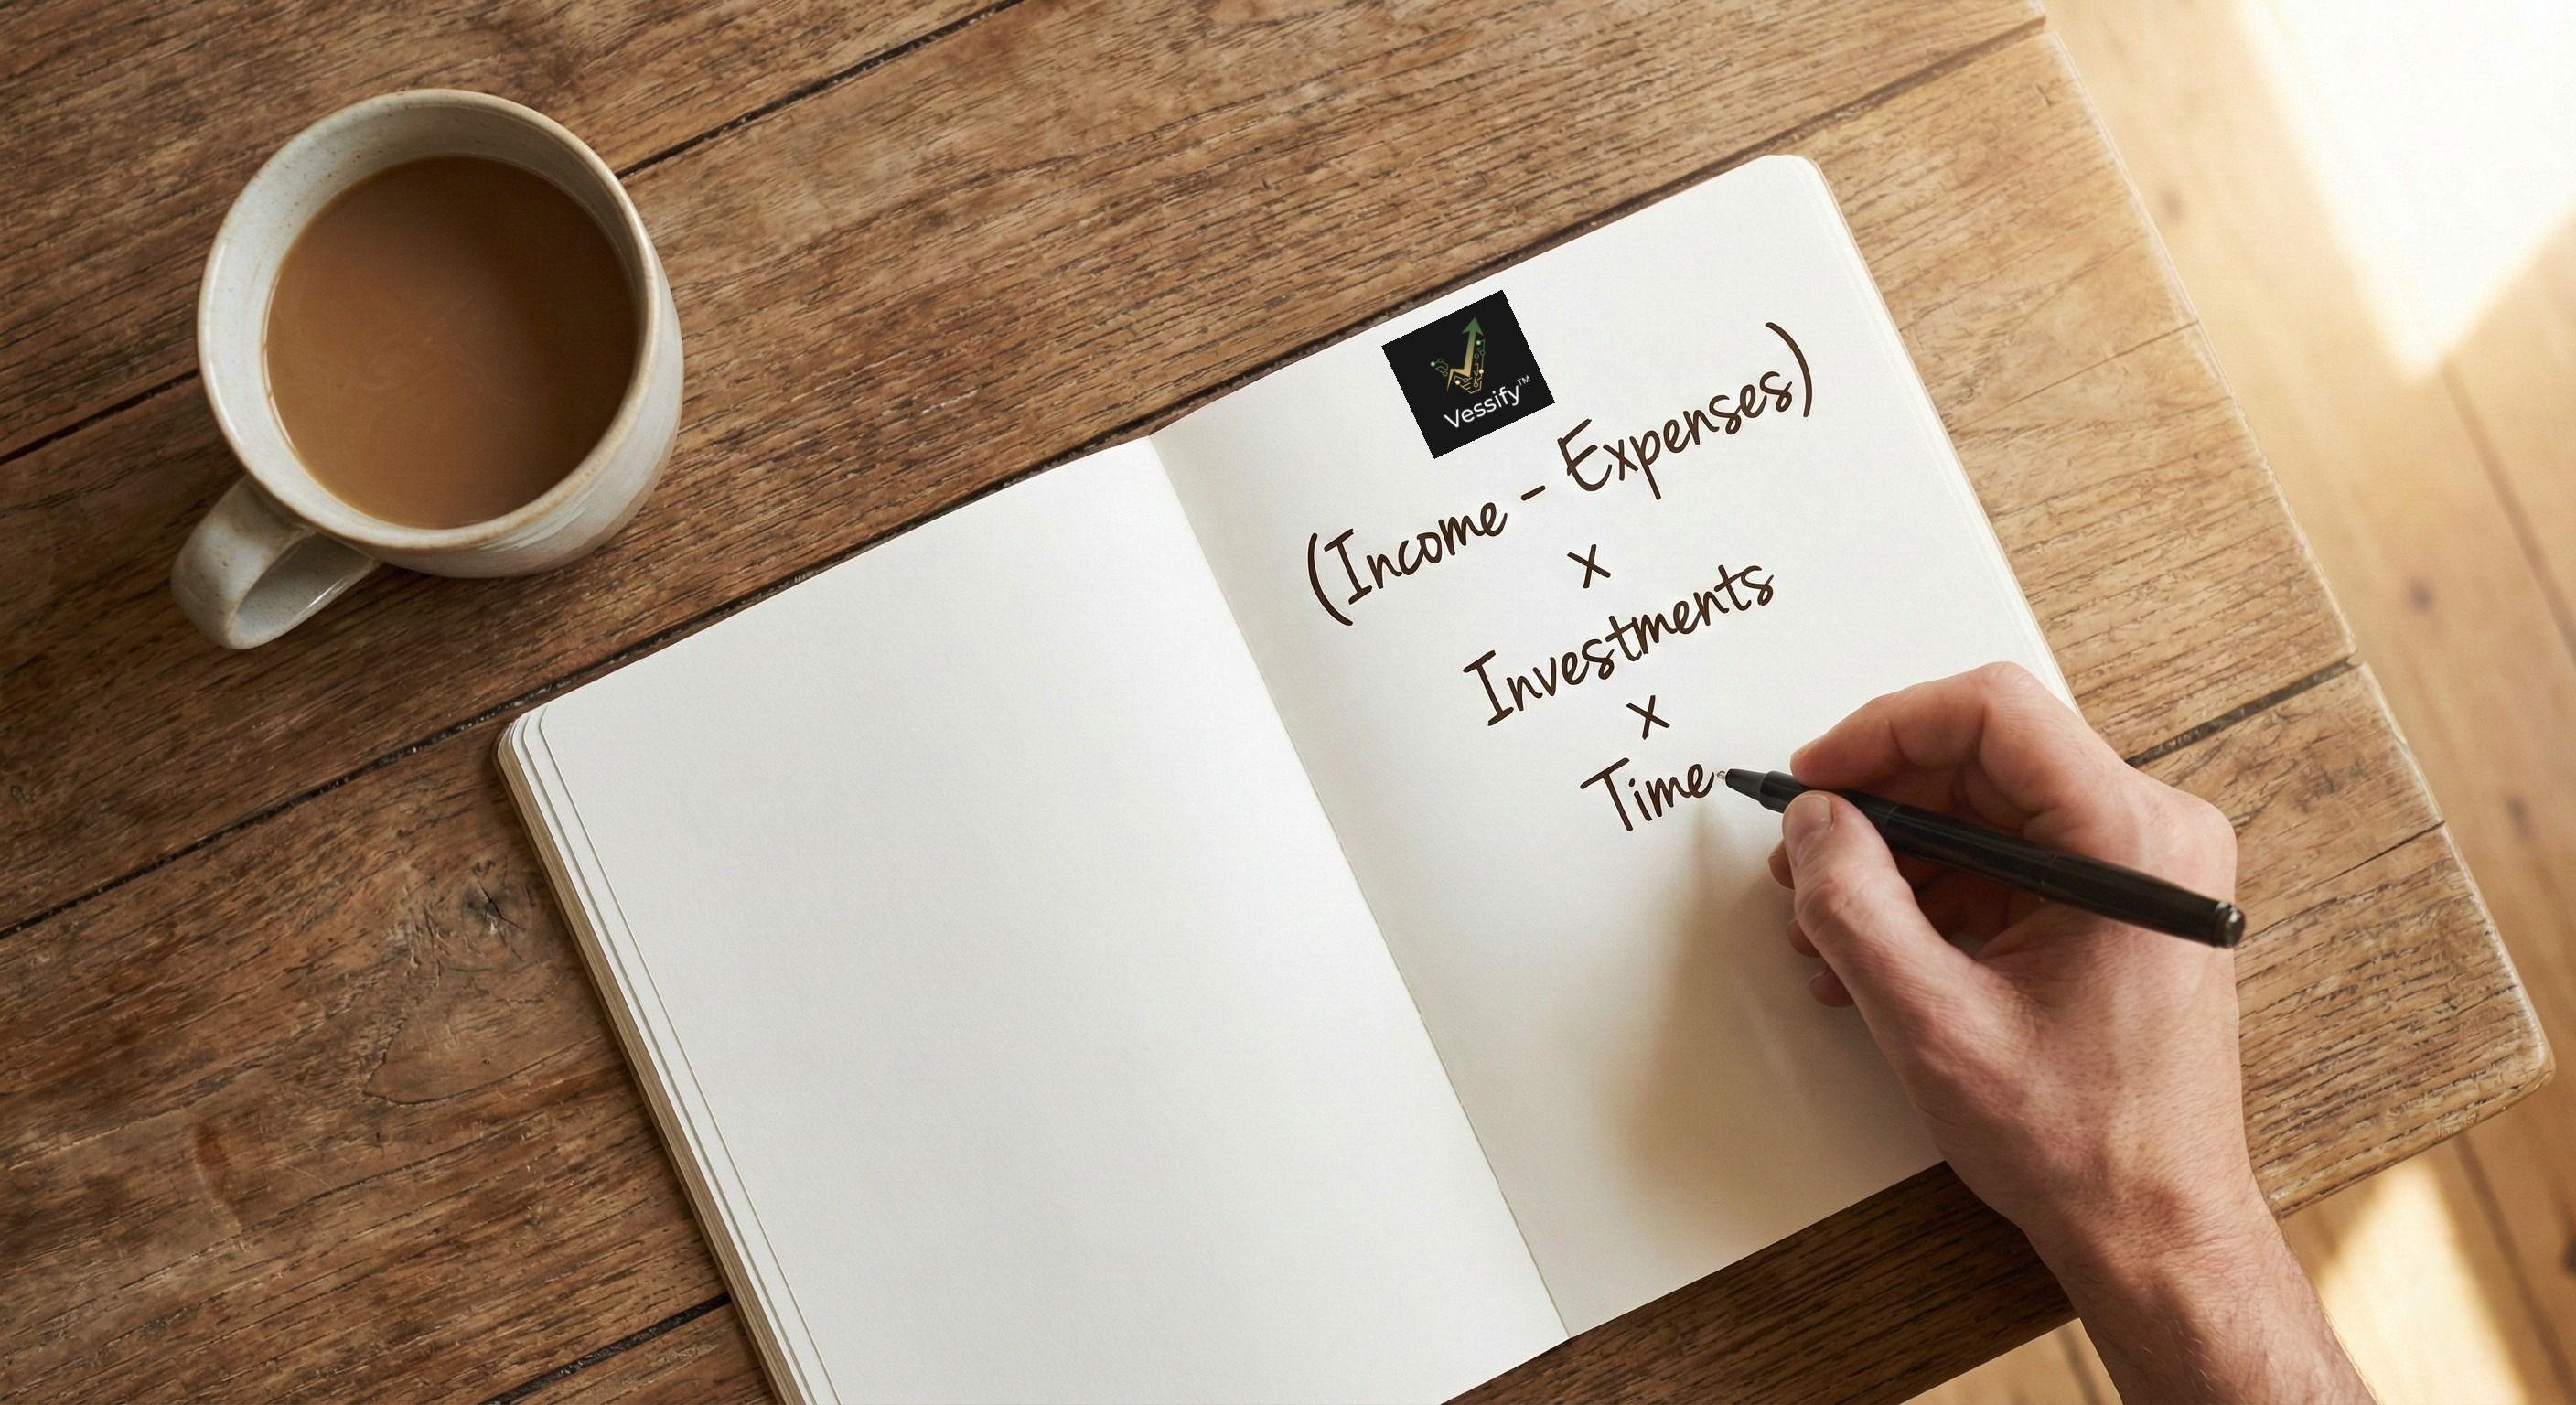 Vessify™
(Income - Expenses)
x
Investments
x
Time